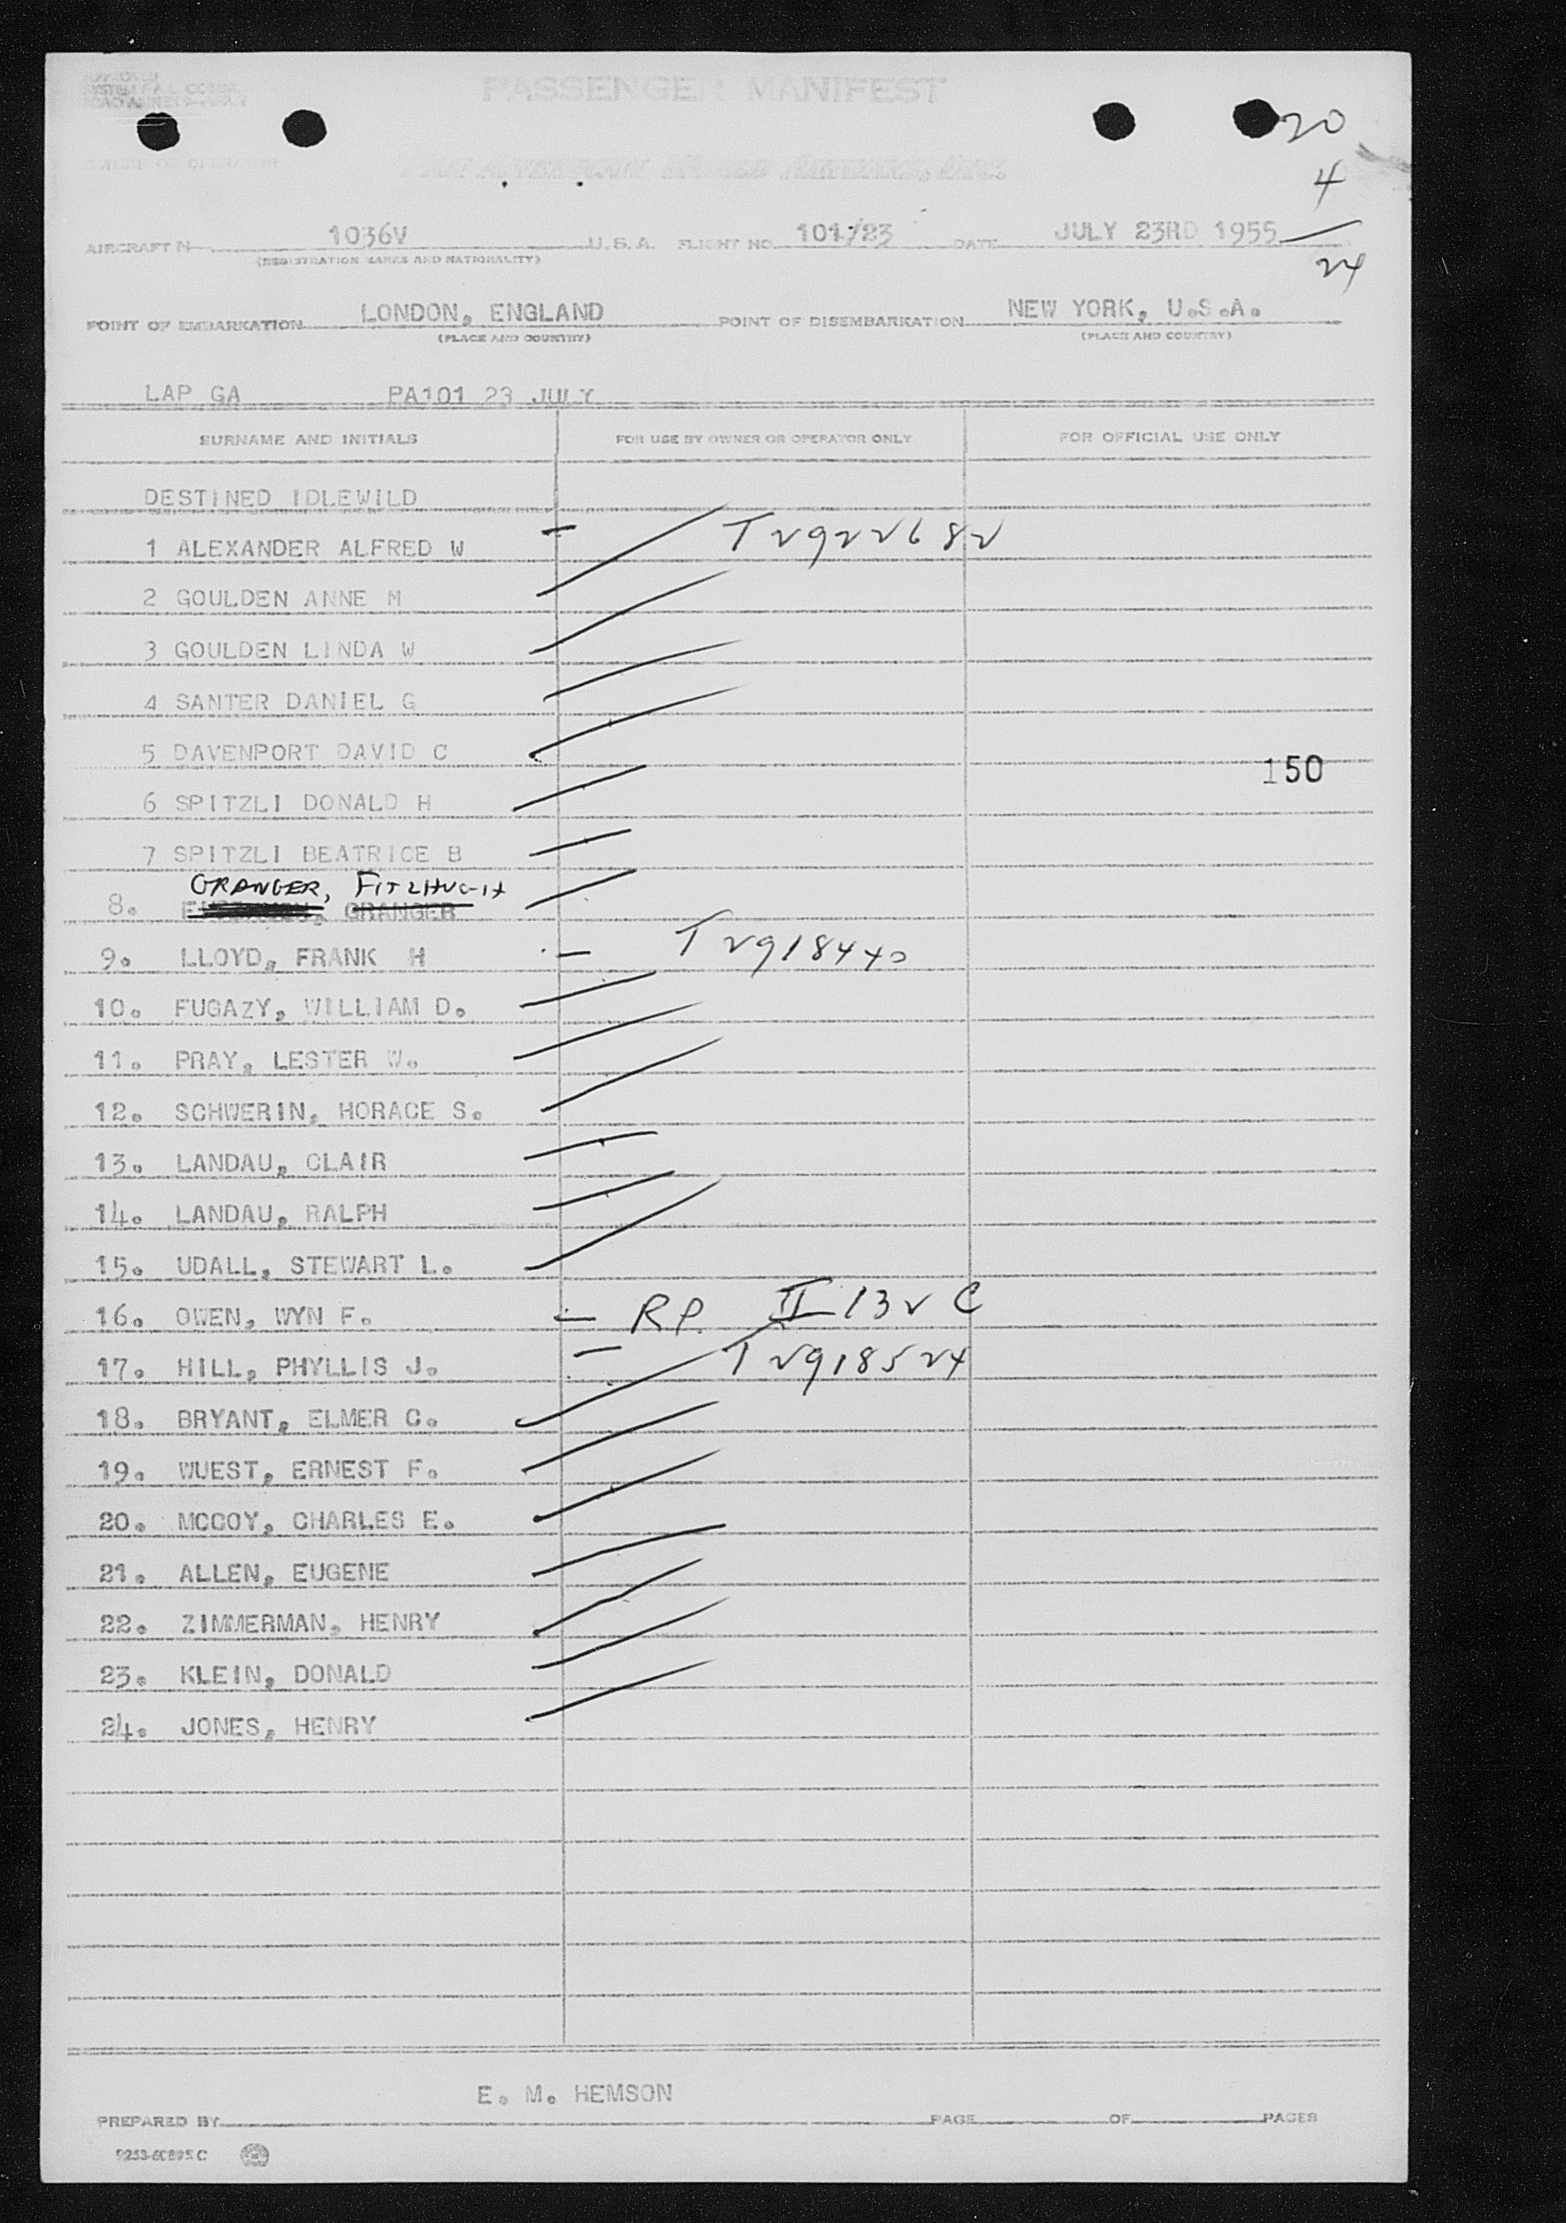 PASSENGER MANIFEST
20
4
24
AIRCRAFT N 1036V U.S.A. FLIGHT NO. 101/23 DATE JULY 23RD 1955
(REGISTRATION MARKS AND NATIONALITY)
POINT OF EMBARKATION LONDON, ENGLAND POINT OF DISEMBARKATION NEW YORK, U.S.A.
(PLACE AND COUNTRY) (PLACE AND COUNTRY)
LAP GA PA101 23 JULY
SURNAME AND INITIALS FOR USE BY OWNER OR OPERATOR ONLY FOR OFFICIAL USE ONLY
DESTINED IDLEWILD
1 ALEXANDER ALFRED W — T2922682
2 GOULDEN ANNE M
3 GOULDEN LINDA W
4 SANTER DANIEL G
5 DAVENPORT DAVID C
150
6 SPITZLI DONALD H
7 SPITZLI BEATRICE B
GRANGER, FITZHUGH
8. GRANGER
9. LLOYD, FRANK H — T2918440
10. FUGAZY, WILLIAM D.
11. PRAY, LESTER W.
12. SCHWERIN, HORACE S.
13. LANDAU, CLAIR
14. LANDAU, RALPH
15. UDALL, STEWART L.
16. OWEN, WYN F. — RP. II 132 C
17. HILL, PHYLLIS J. — T2918524
18. BRYANT, ELMER C.
19. WUEST, ERNEST F.
20. MCCOY, CHARLES E.
21. ALLEN, EUGENE
22. ZIMMERMAN, HENRY
23. KLEIN, DONALD
24. JONES, HENRY
E. M. HEMSON
PREPARED BY PAGE OF PAGES